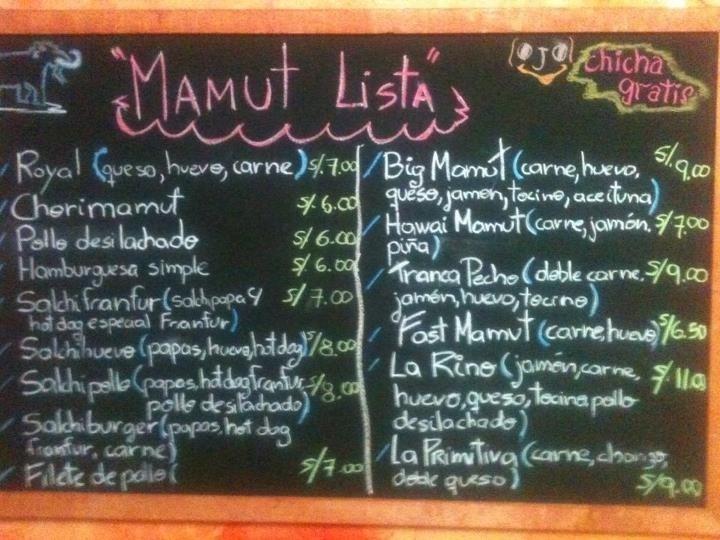 "MAMUT LISTA"
OJO
chicha
gratis
Royal (queso, huevo, carne) S/7.00
Chorimamut S/6.00
Pollo desilachado S/6.00
Hamburguesa simple S/6.00
Salchifranfur (salchipapa y S/7.00
hot dog especial Franfur)
Salchihuevo (papas, huevo, hot dog) S/8.00
Salchipollo (papas, hot dog franfur, S/8.00
pollo desilachado)
Salchiburger (papas, hot dog
franfur, carne)
Filete de pollo ( S/7.00
Big Mamut (carne, huevo, S/.9.00
queso, jamon, tocino, aceituna)
Hawai Mamut (carne, jamón, S/7.00
piña)
Tranca Pecho (doble carne, S/9.00
jamón, huevo, tocino)
Fast Mamut (carne, huevo) S/6.50
La Rino (jamón, carne, S/11.0
huevo, queso, tocino pollo
desilachado)
La Primitiva (carne,
doble queso) S/9.00